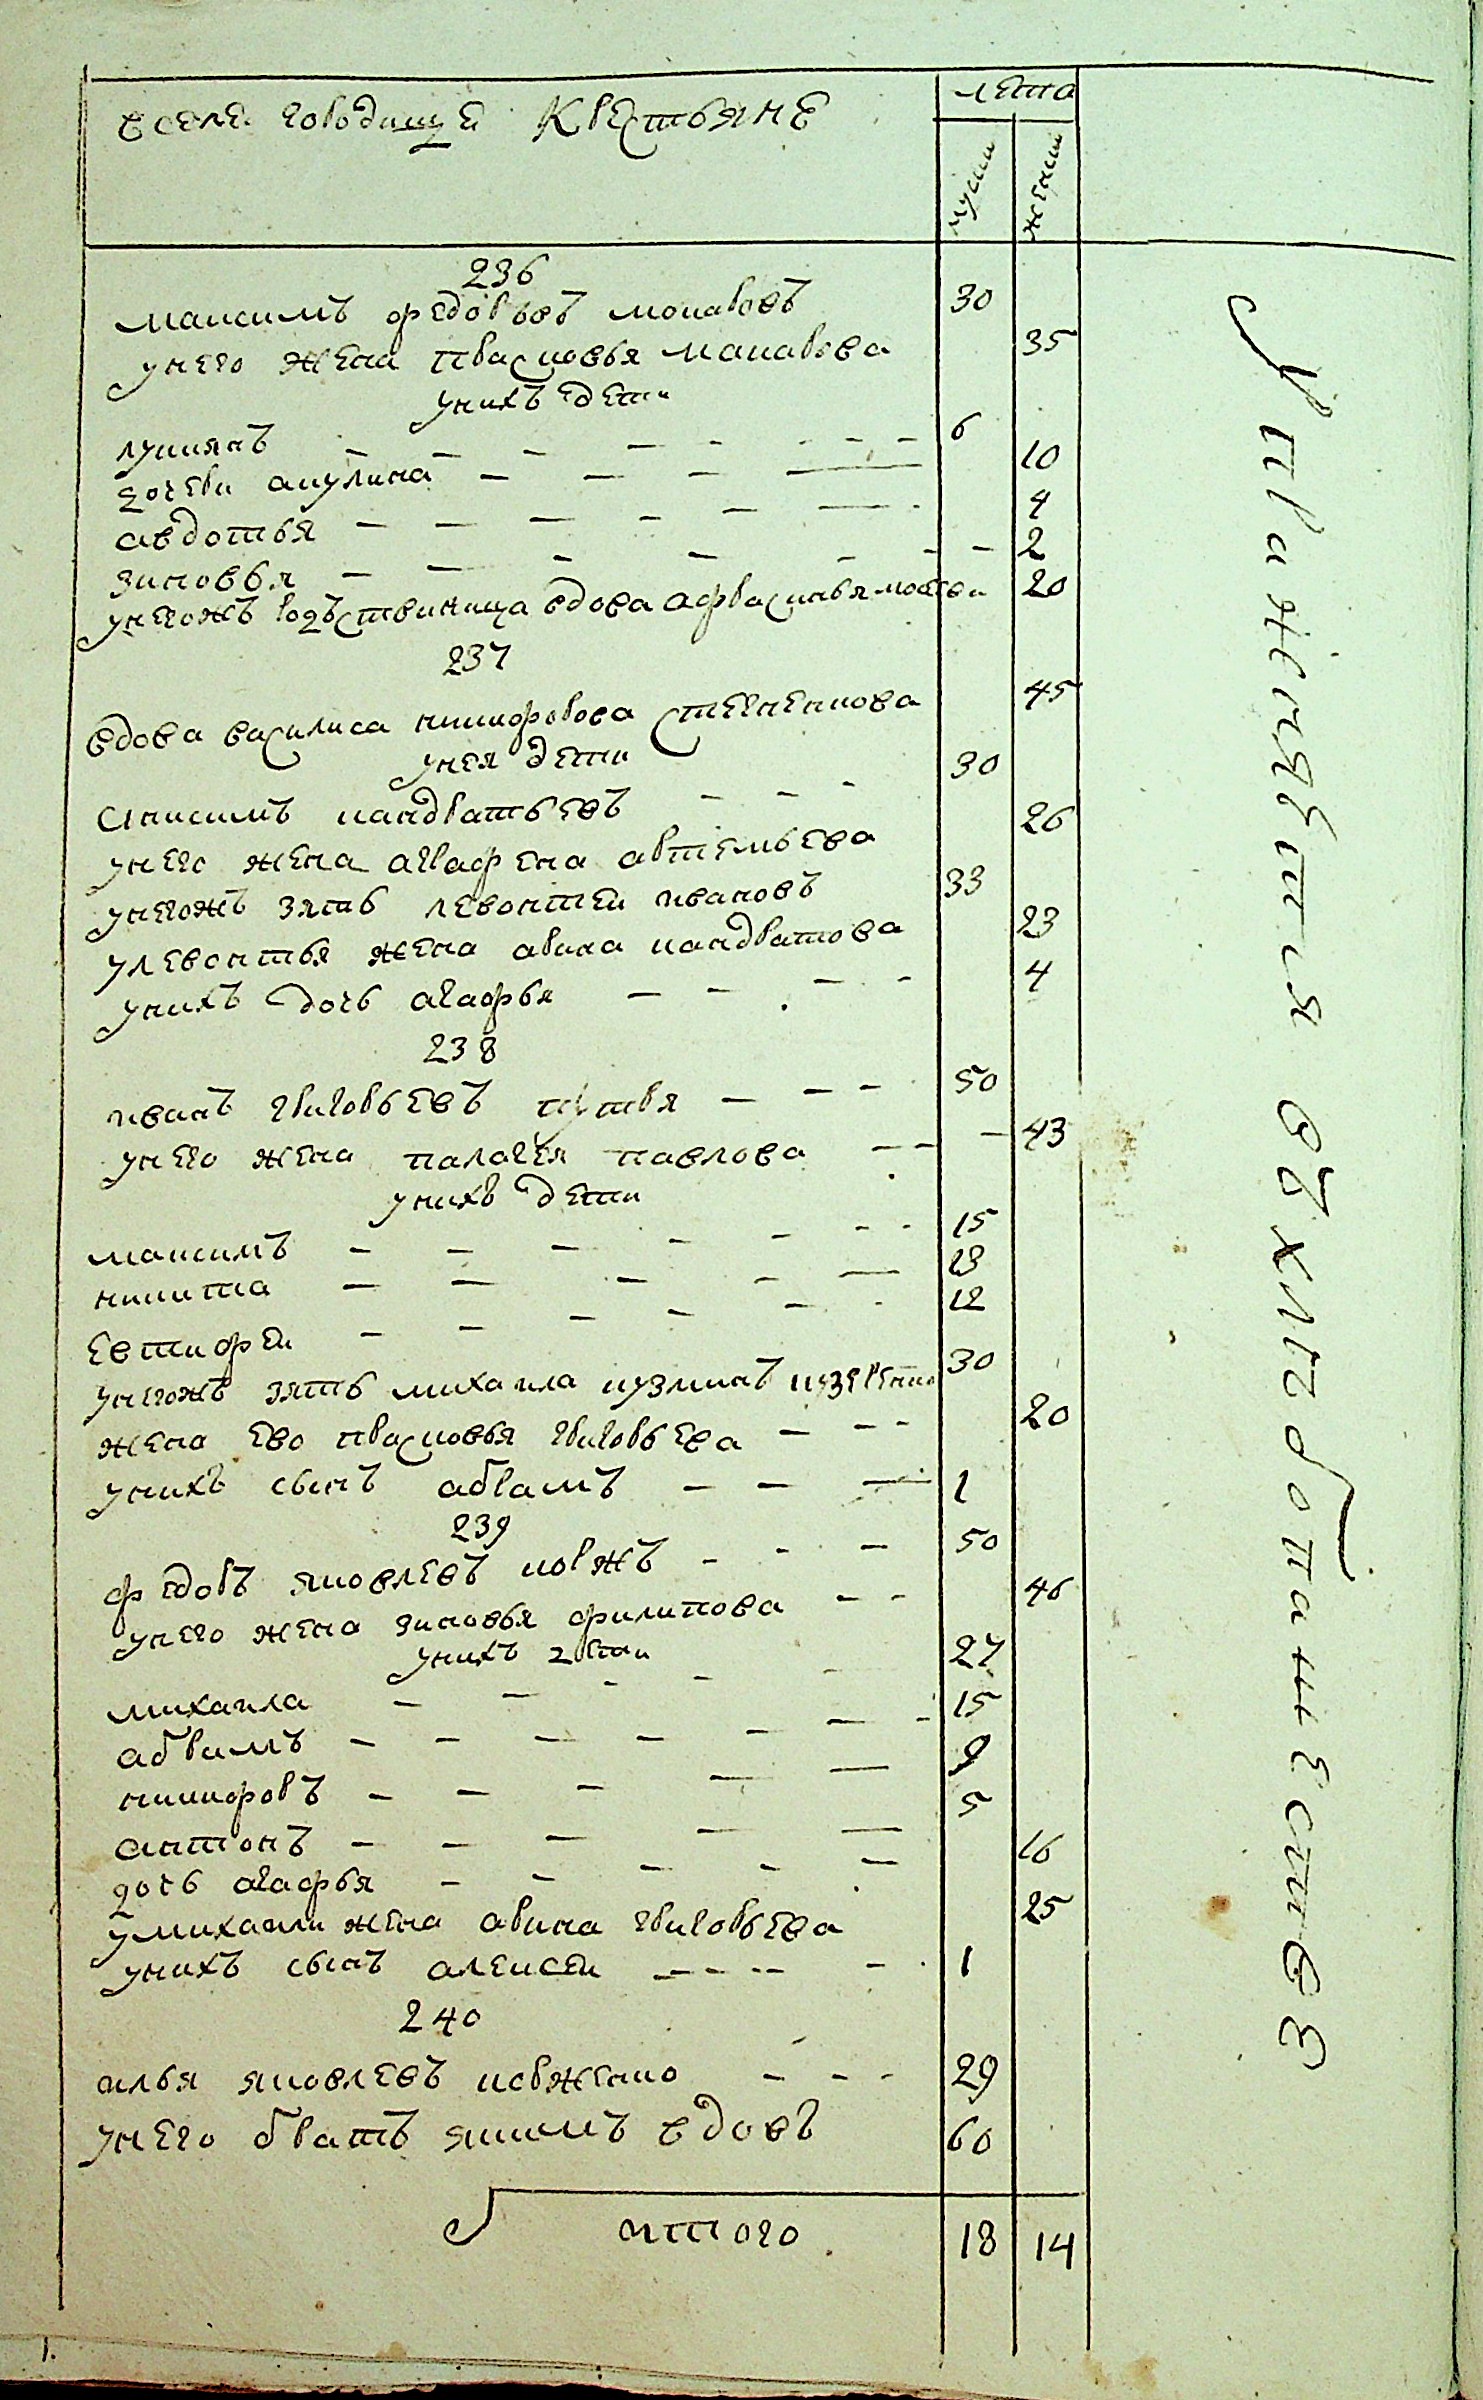 в селе городище Крестьяне
лета
мужи
женит
236
максимъ федоровъ макаровъ 30
унего жена прасковья макарова 35
унихъ дети
лукиянъ 6
дочери акулина 10
авдотья 4
зиновья 2
унегожъ родственница вдова афросинья 20
237
вдова василиса никифорова 45
унея дети
анисимъ кандратьевъ 30
унего жена аграфена артемьева 26
унегожъ зять левонтеи ивановъ 33
улевонтья жена арина кандратова 23
унихъ дочь агафья 4
238
иванъ григорьевъ 50
унего жена палагея павлова 43
унихъ дети
максимъ 15
никита 13
евтифеи 12
унегожъ зять михаила кузминъ 30
жена ево прасковья григорьева 20
унихъ сынъ абрамъ 1
239
федоръ яковлевъ коржъ 50
унего жена зиновья филипова 46
унихъ дети
михаила 27
абрамъ 15
никифоръ 9
антонъ 5
дочь агафья 16
умихаили жена арина григорьева 25
унихъ сынъ алексеи 1
240
илья яковлевъ корженко 29
унего братъ якимъ вдовъ 60
итого 18 14